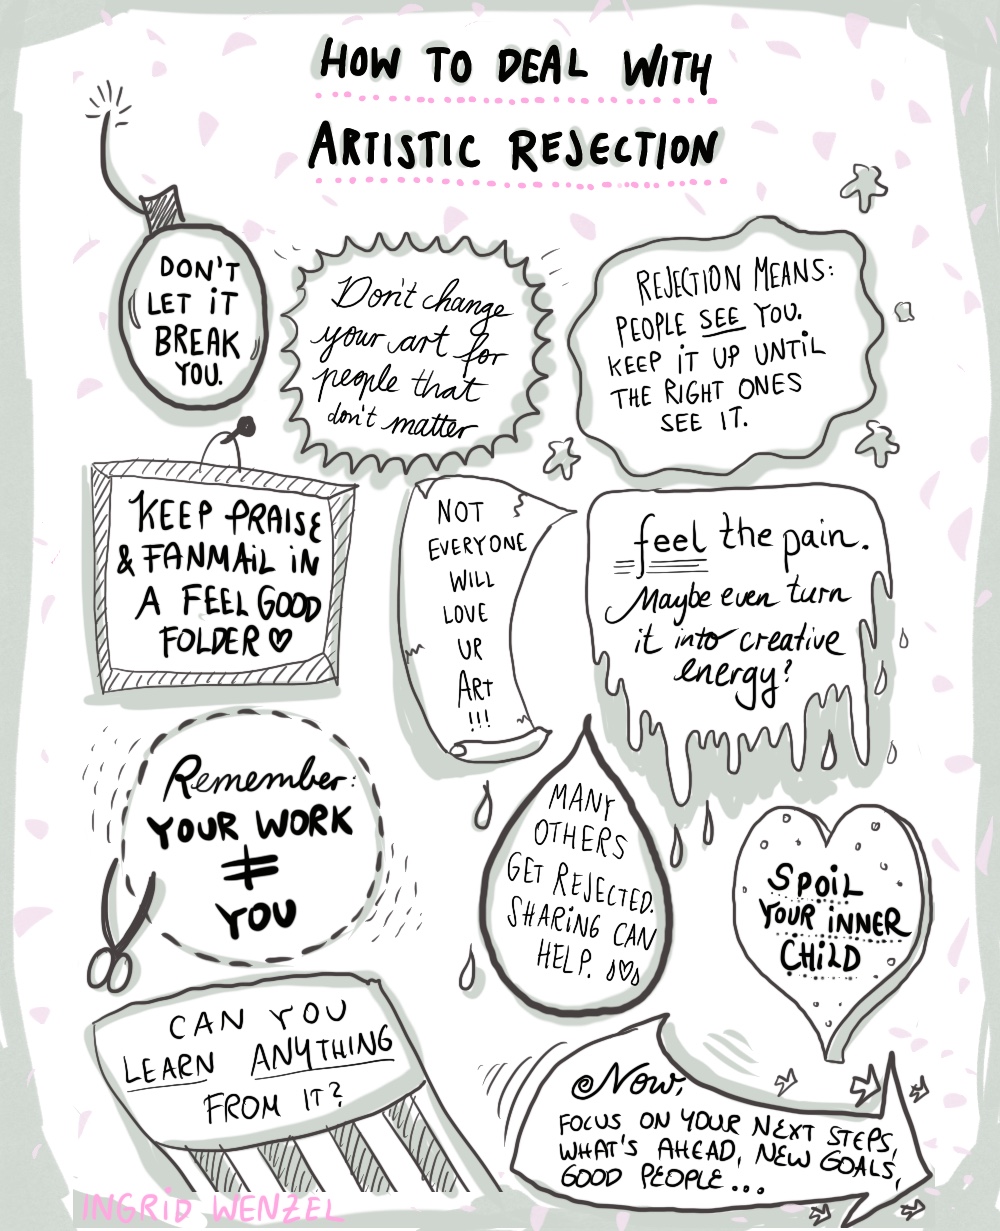 HOW TO DEAL WITH
ARTISTIC REJECTION
DON'T
LET iT
BREAK
YOU.
Don't change
your art for
people that
don't matter
REJECTION MEANS:
PEOPLE SEE YOU.
KEEP iT UP UNTiL
THE RIGHT ONES
SEE IT.
KEEP PRAISE
& FANMAiL iN
A FEEL GOOD
FOLDER ♡
NOT
EVERYONE
WILL
LOVE
UR
ART
!!!
feel the pain.
Maybe even turn
it into creative
energy?
Remember:
YOUR WORK
≠
YOU
MANY
OTHERS
GET REJECTED.
SHARiNG CAN
HELP. ♡
SPOiL
YOUR iNNER
CHiLD
CAN YOU
LEARN ANYTHING
FROM IT?
Now,
FOCUS ON YOUR NEXT STEPS,
WHAT'S AHEAD, NEW GOALS,
GOOD PEOPLE...
INGRiD WENZEL